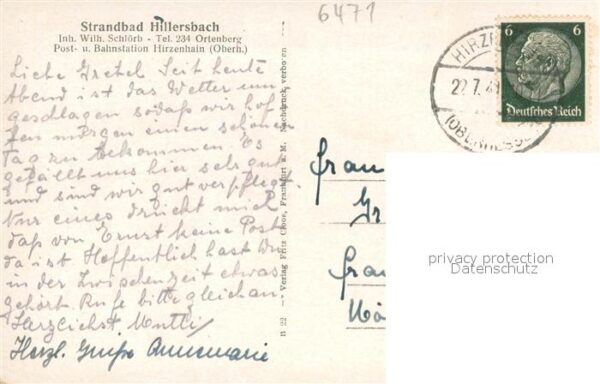 Strandbad Hillersbach
Inh. Wilh. Schlörb - Tel. 234 Ortenberg
Post- u. Bahnstation Hirzenhain (Oberh.)
6471
Liebe Gretel Seit heute
Abend ist das Wetter um
geschlagen sodaß wir hof
fen morgen einen schönen
Tag zu bekommen Es
gefällt uns hier sehr gut
und sind wir gut verpflegt
Nur eines drückt mich
daß von Ernst keine Post
da ist Hoffentlich hast Du
in der Zwischenzeit etwas
gehört. Rufe bitte gleich an
Herzlichst Mutti
Herzl. Grüße Annemarie
B 22 — Verlag Fritz Frankfurt a. M. Nachdruck verboten
6 6
Deutsches Reich
HIRZE
22.7.4
(OBERHESS
Frau
Gr
Fra
privacy protection
Datenschutz